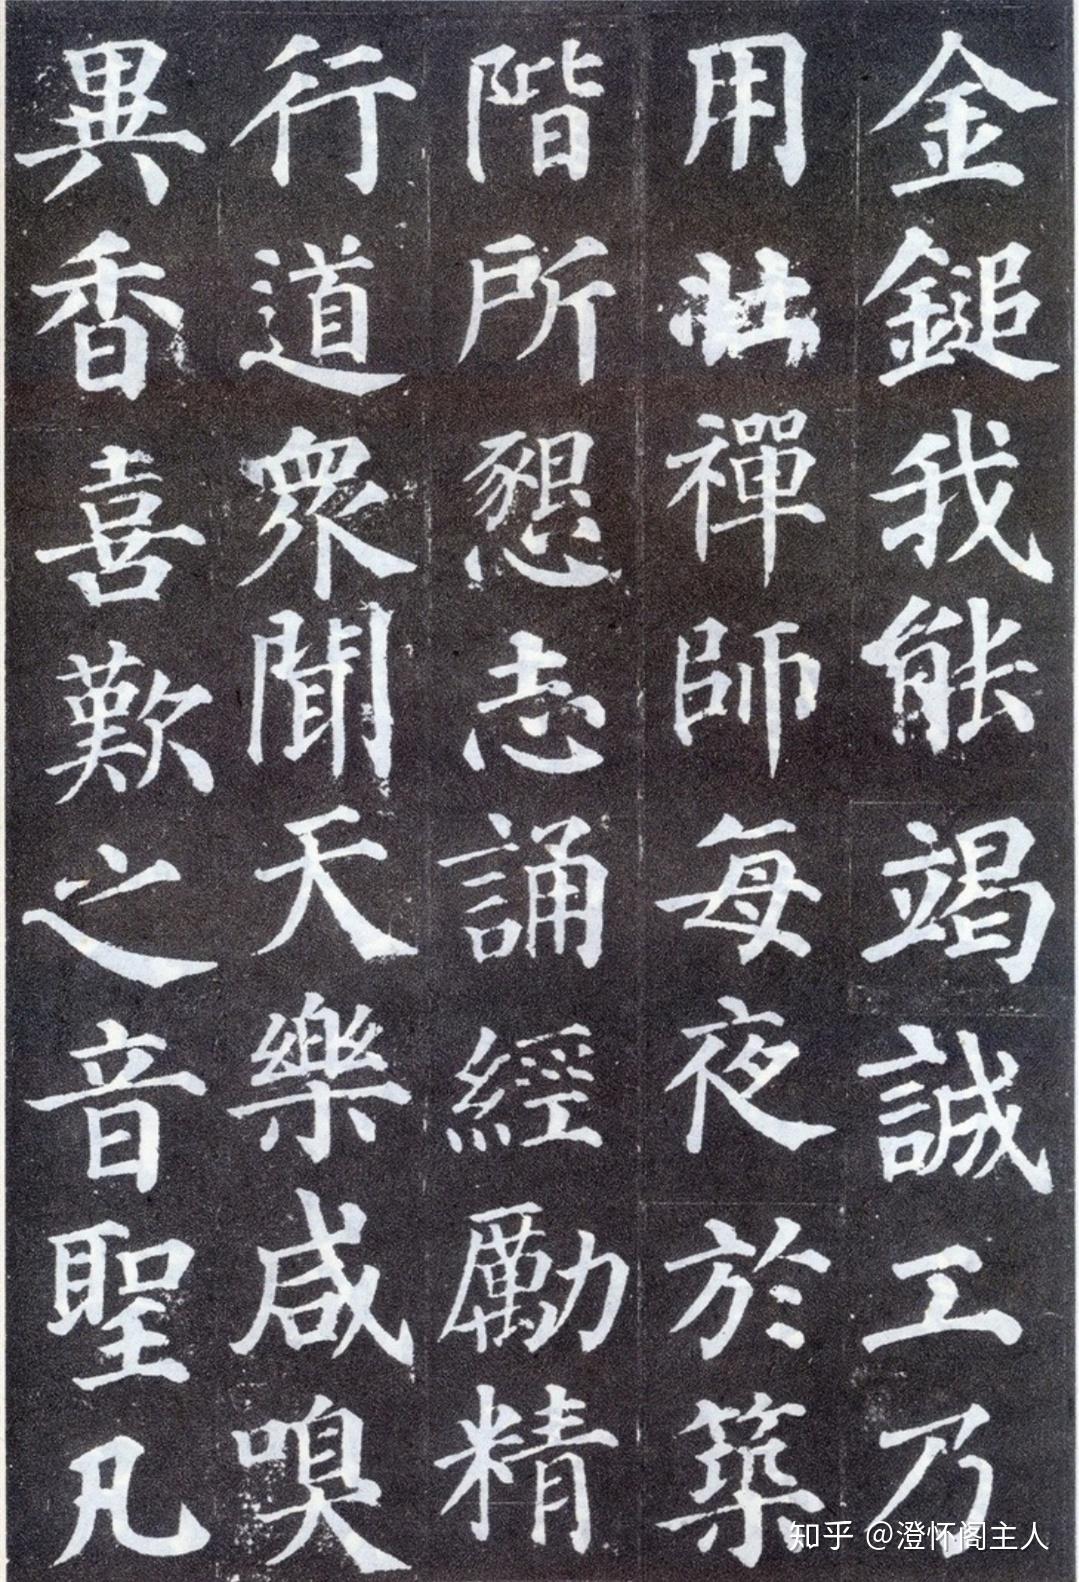 金鎚我能竭誠工乃
用壯禪師每夜於築
階所懇志誦經勵精
行道眾聞天樂咸嗅
異香喜歎之音聖凡
知乎 @澄怀阁主人